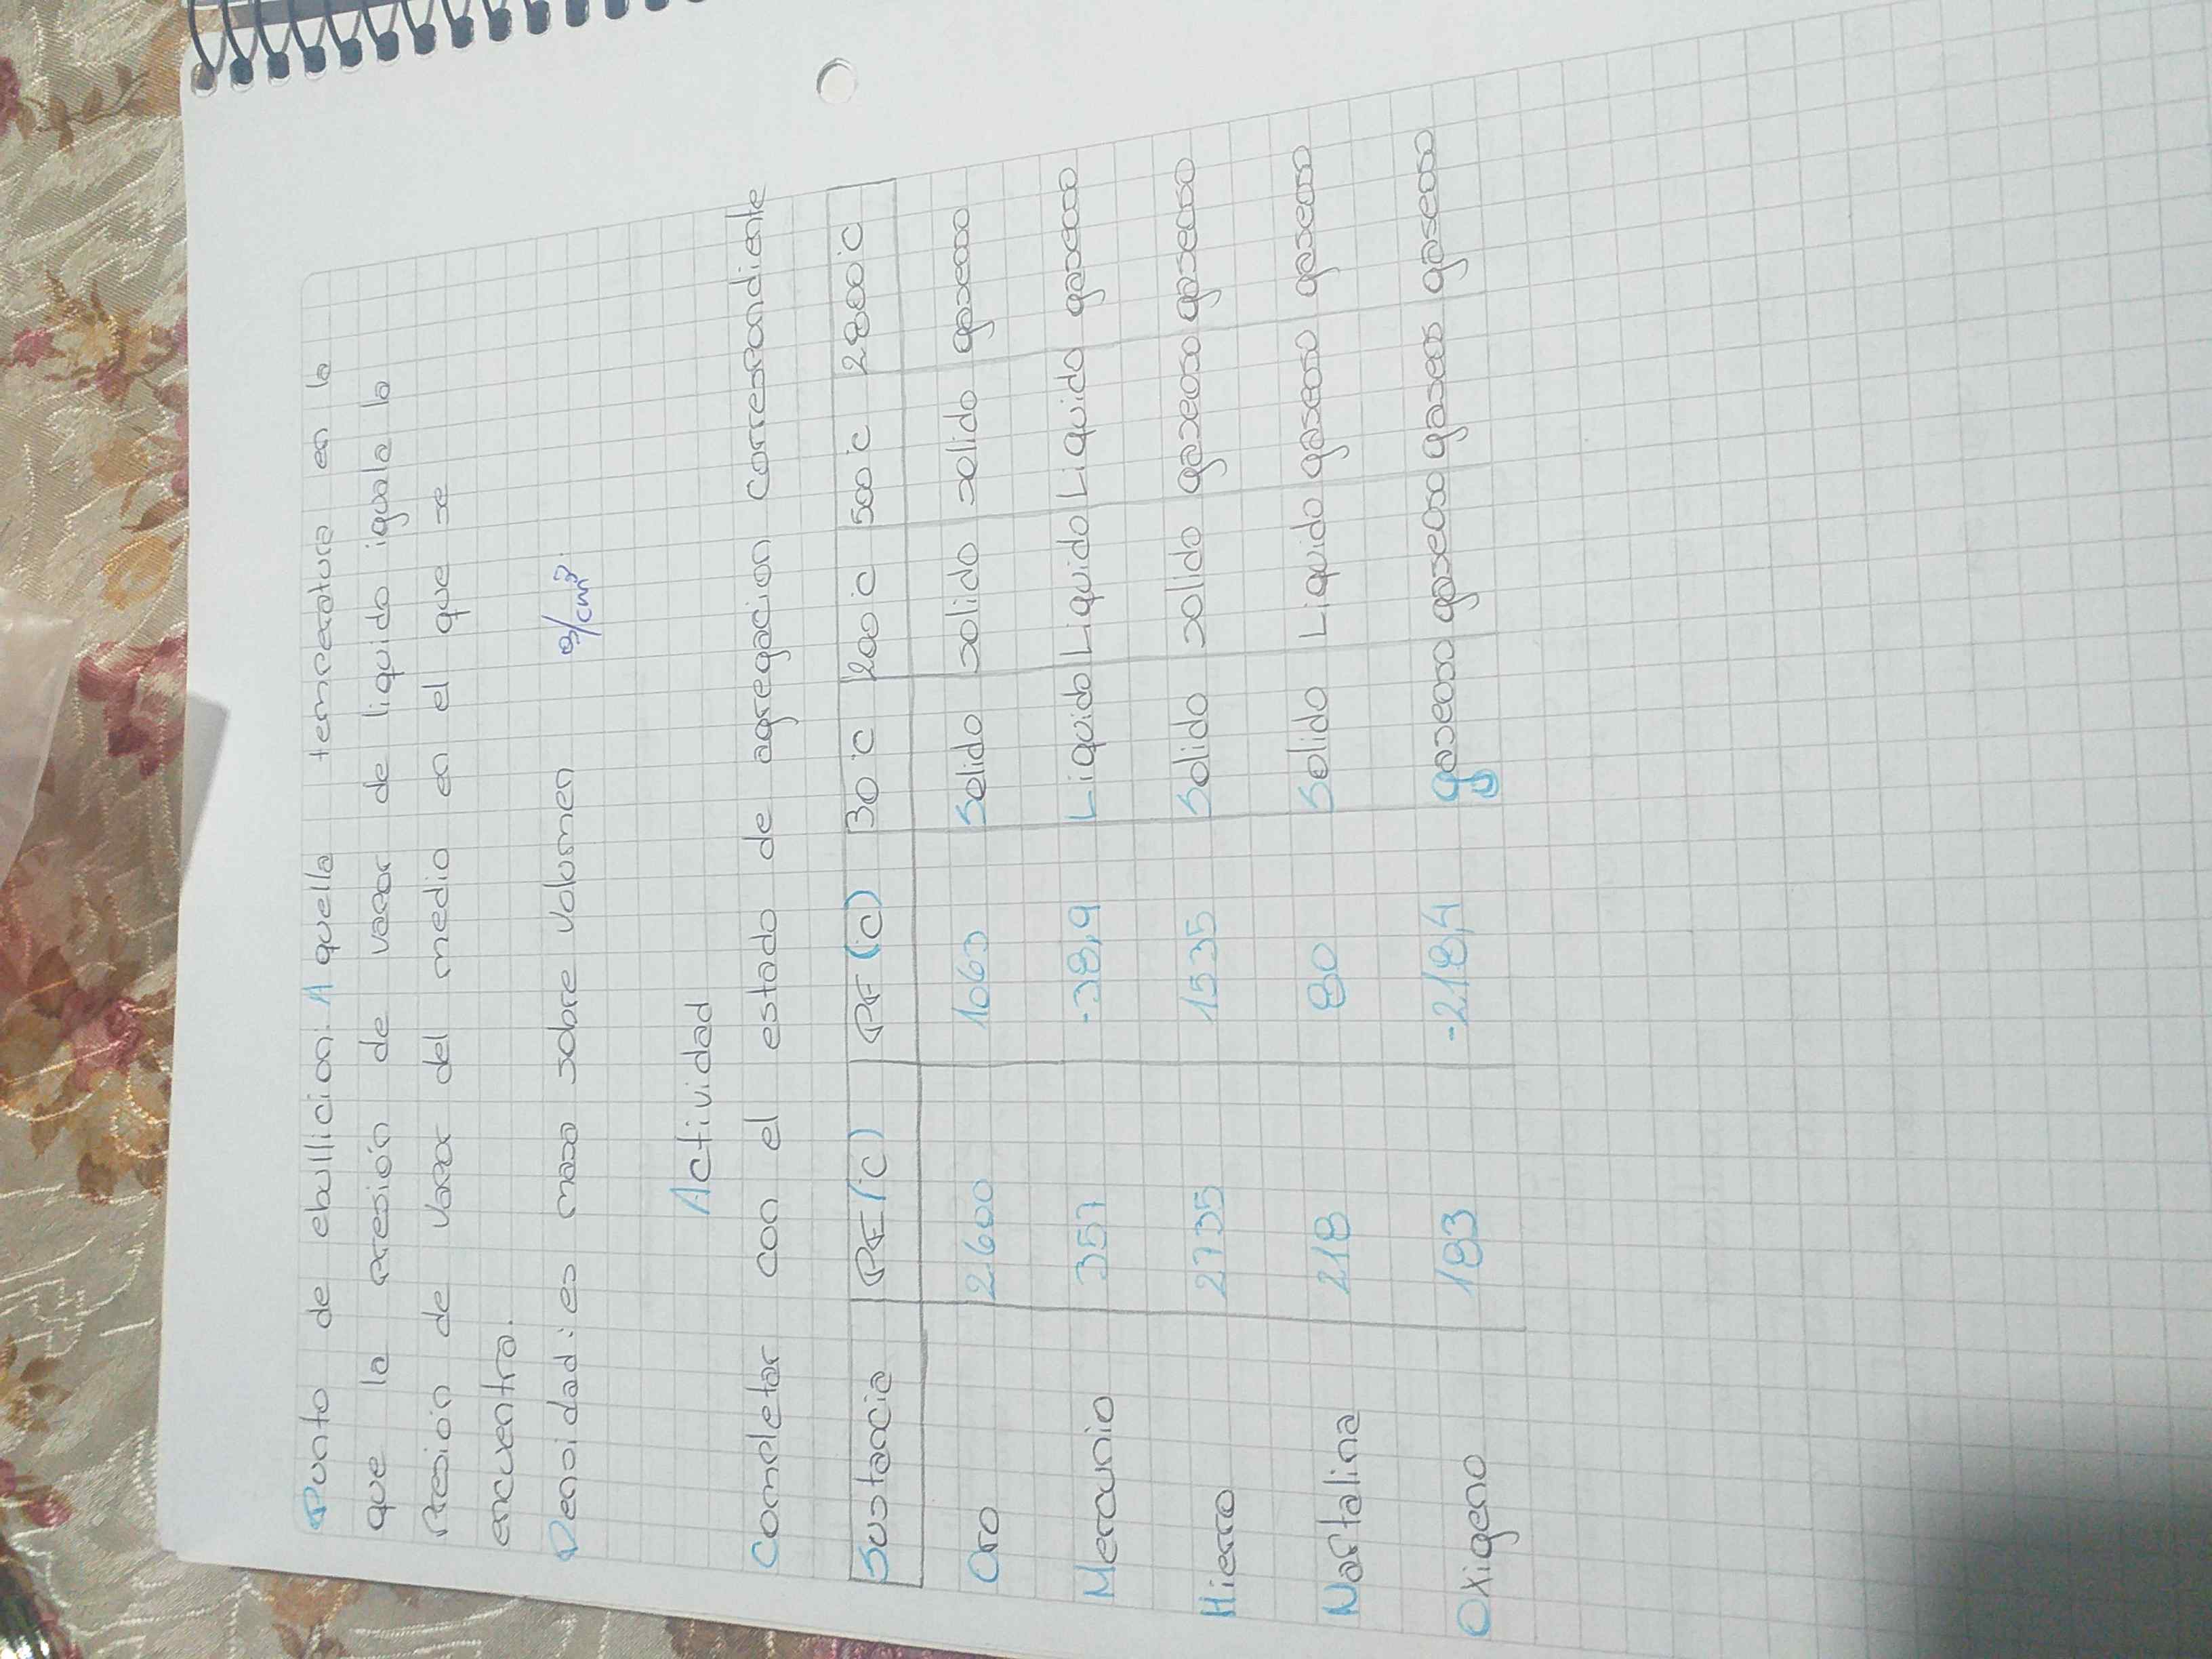 Punto de ebullicion: A quella temperatura en la
que la presión de vapor de liquido iguala la
Presion de vapor del medio en el que se
encuentra.
Densidad: es masa sobre volumen g/cm³.
Actividad
Completar con el estado de agregacion correspondiente
Sustancia PE(°C) PF(°C) 30°C 200°C 500°C 2800°C
Oro 2.600 1063 Solido solido solido gaseoso
Mercurio 357 -38,9 Liquido Liquido Liquido gaseoso
Hierro 2735 1535 Solido solido gaseoso gaseoso
Naftalina 218 80 Solido Liquido gaseoso gaseoso
Oxigeno 183 -218,4 gaseoso gaseoso gaseos gaseoso